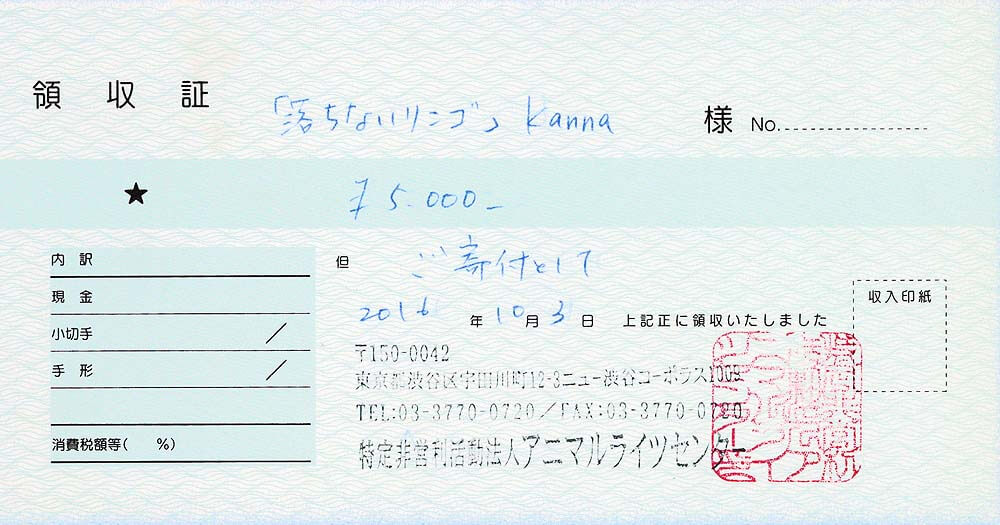 領収証
「落ちないリンゴ」 Kanna 様 No.
★ ¥5.000-
内訳
現金
小切手 ／
手形 ／
消費税額等( %)
但 ご寄付として
2016年10月3日 上記正に領収いたしました
収入印紙
〒150-0042
東京都渋谷区宇田川町12-3ニュー渋谷コーポラス1009
TEL:03-3770-0720／FAX:03-3770-0720
特定非営利活動法人アニマルライツセンター